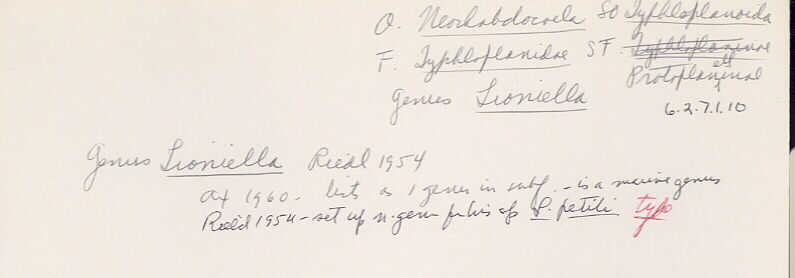 O. Neorhabdocoela SO Typhloplanoida
F. Typhloplanidae SF Typhloplaninae
Protoplanellinae
Genus Lioniella
6.2.7.1.10
Genus Lioniella Riedl 1954
Ax 1960 - lists as 1 genus in subf. - is a marine genus
Riedl 1954 - set up n. gen. for his sp L. petiti typo